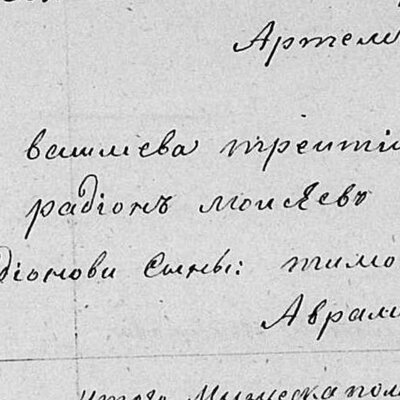 Артем
вашлева трети
радіонъ моисѣевъ
діонови Сыны: тимо
Аврам
итого Мужеска пол